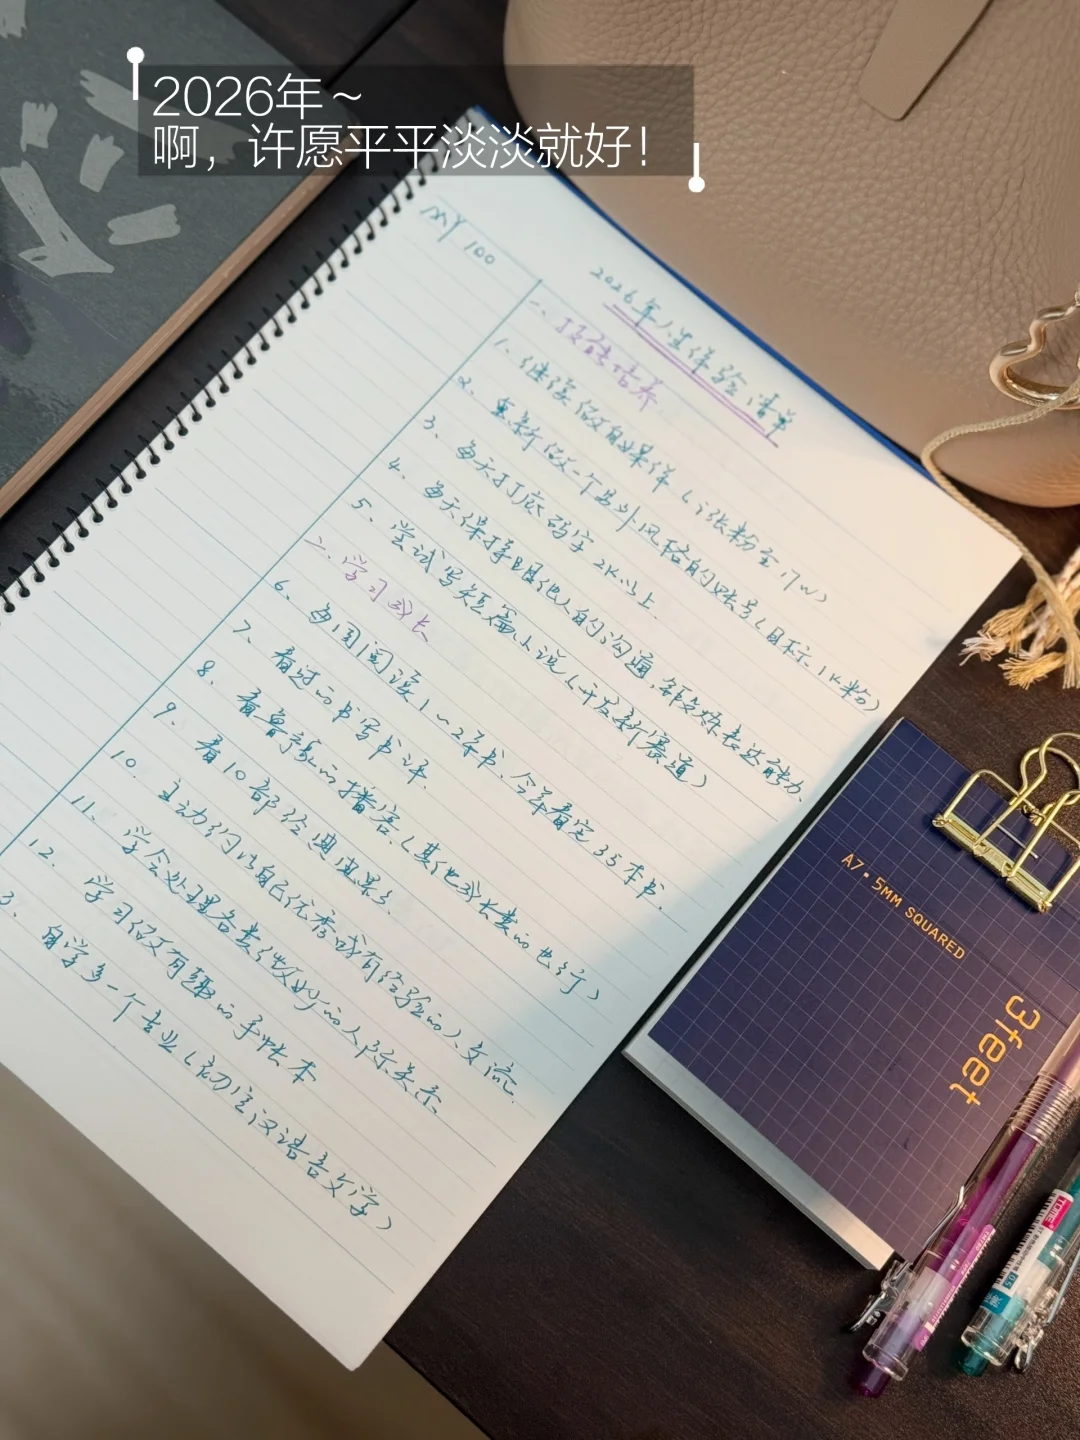 2026年~
啊，许愿平平淡淡就好！
MY 100
2026年人生体验清单
一、技能培养
1、继续做自媒体（涨粉至1w）
2、重新做一个另外风格的账号（目标1k粉）
3、每天打底码字2K以上
4、每天保持跟他人的沟通，锻炼表达能力、
5、尝试写短篇小说（开发新赛道）
二、学习成长
6、每周阅读1~2本书、今年看完35本书、
7、看过的书写书评、
8、看鲁豫的播客、（其他成长类的也行）
9、看10部经典电影、
10、主动约比自己优秀或有经验的人交流、
11、学会处理各类做好的人际关系
12、学习做有趣的手帐本
3、自学多一个专业（初定汉语言文学）
A7·5MM SQUARED
3feet